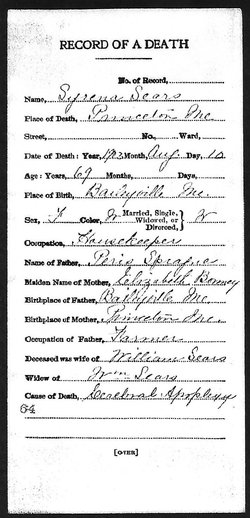 RECORD OF A DEATH
No. of Record,
Name, Syrena Sears
Place of Death, Princeton Me.
Street, No., Ward,
Date of Death: Year, Month, Aug. Day, 10
Age: Years, 69 Months, Days,
Place of Birth, Baileyville Me.
Sex, F Color, W Married, Single, Widowed, or Divorced, } W
Occupation, Housekeeper
Name of Father, Sprague
Maiden Name of Mother, Elizabeth
Birthplace of Father, Baileyville Me
Birthplace of Mother, Princeton Me.
Occupation of Father, Farmer
Deceased was wife of William Sears
Widow of Wm Sears
Cause of Death, Cerebral Apoplexy
64
[OVER]